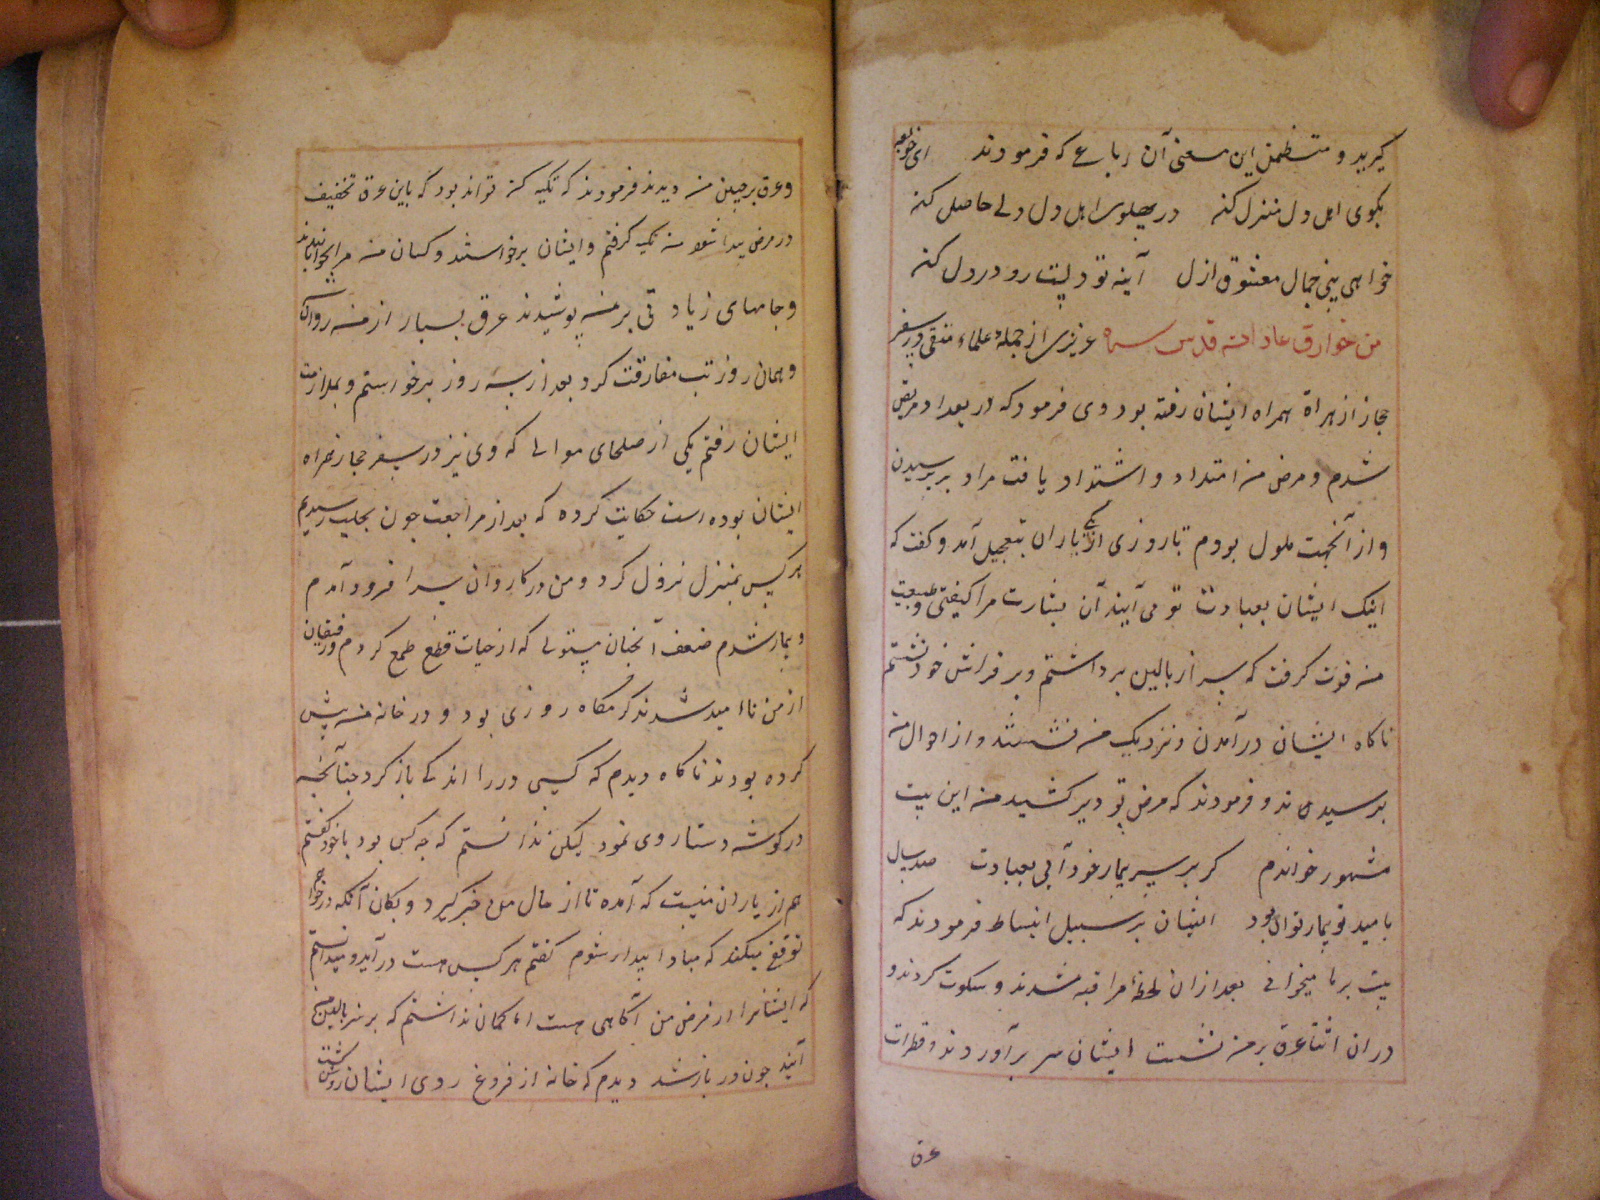 گیرید و متضمن این معنی آن رباعی که فرمودند ای خواجه
بکوی اهل دل منزل کن در پهلوی اهل دل دلی حاصل کن
خواهی بینی جمال معشوق ازل آینه تو دلست رو در دل کن
من خوارق عاداته قدس سره عزیزی از جمله علماء متقی در سفر
حجاز از هراة همراه ایشان رفته بود وی فرمود که در بغداد مریض
شدم و مرض من امتداد و اشتداد یافت مراد بپرسیدن
و از آنجهت ملول بودم تا روزی یکی از یاران بتعجیل آمد و کفت که
اینک ایشان بعیادت تو می آیند آن بشارت مرا کیفیتی و طبیعت
من قوت کرفت که سر از بالین برداشتم و بر فراش خود نشستم
ناکاه ایشان درآمدن و نزدیک من نشستند و از احوال من
پرسیدند و فرمودند که مرض تو دیر کشید من این بیت
مشهور خواندم کر بر سر بیمار خود آیی بعیادت صد سال
بامید تو بیمار توان بود ایشان بر سبیل انبساط فرمودند که
بیت بر ما میخوانی بعد از ان لحظه مراقبه شدند و سکوت کردند و
در ان اثنا عرق بر من نشست ایشان سر برآوردند و قطرات
وعرق بر جبین من دیدند فرمودند که تکیه کن تواند بود که باین عرق تخفیف
در مرض پیدا شود من تکیه کرفتم و ایشان برخواستند و کسان من مرا بخوابانیدند
و جامهای زیادتی بر من پوشیدند عرق بسیار از من روان
و همان روز تب مفارقت کرد بعد از سه روز برخواستم و بملازمت
ایشان رفتم یکی از صلحای موالی که وی نیز در سفر حجاز همراه
ایشان بوده است حکایت کرده که بعد از مراجعت چون بحلب رسیدیم
هر کس بمنزل نزول کرد و من در کاروان سرا فرود آمدم
و بیمار شدم ضعف آنچنان مستولی که از حیات قطع طمع کردم و رفیقان
از من ناامید شدند کرمکاه روزی بود و در خانه من پیش
کرده بودند ناکاه دیدم که کسی در را اندکی باز کرد چنانچه
در کوشه دستار وی نمود لیکن ندانستم که چه کس بود با خود کفتم
هم از یاران منست که آمده تا از حال من خبر گیرد و بکان آنکه در خوابم
توقف میکند که مبادا بیدار شوم کفتم هر کس هست درآید و نمیدانستم
که ایشانرا از مرض من آکاهی هست اما کمان نداشتم که بر سر بالین من
آیند چون در باز شد دیدم که خانه از فروغ روی ایشان روشن کشت